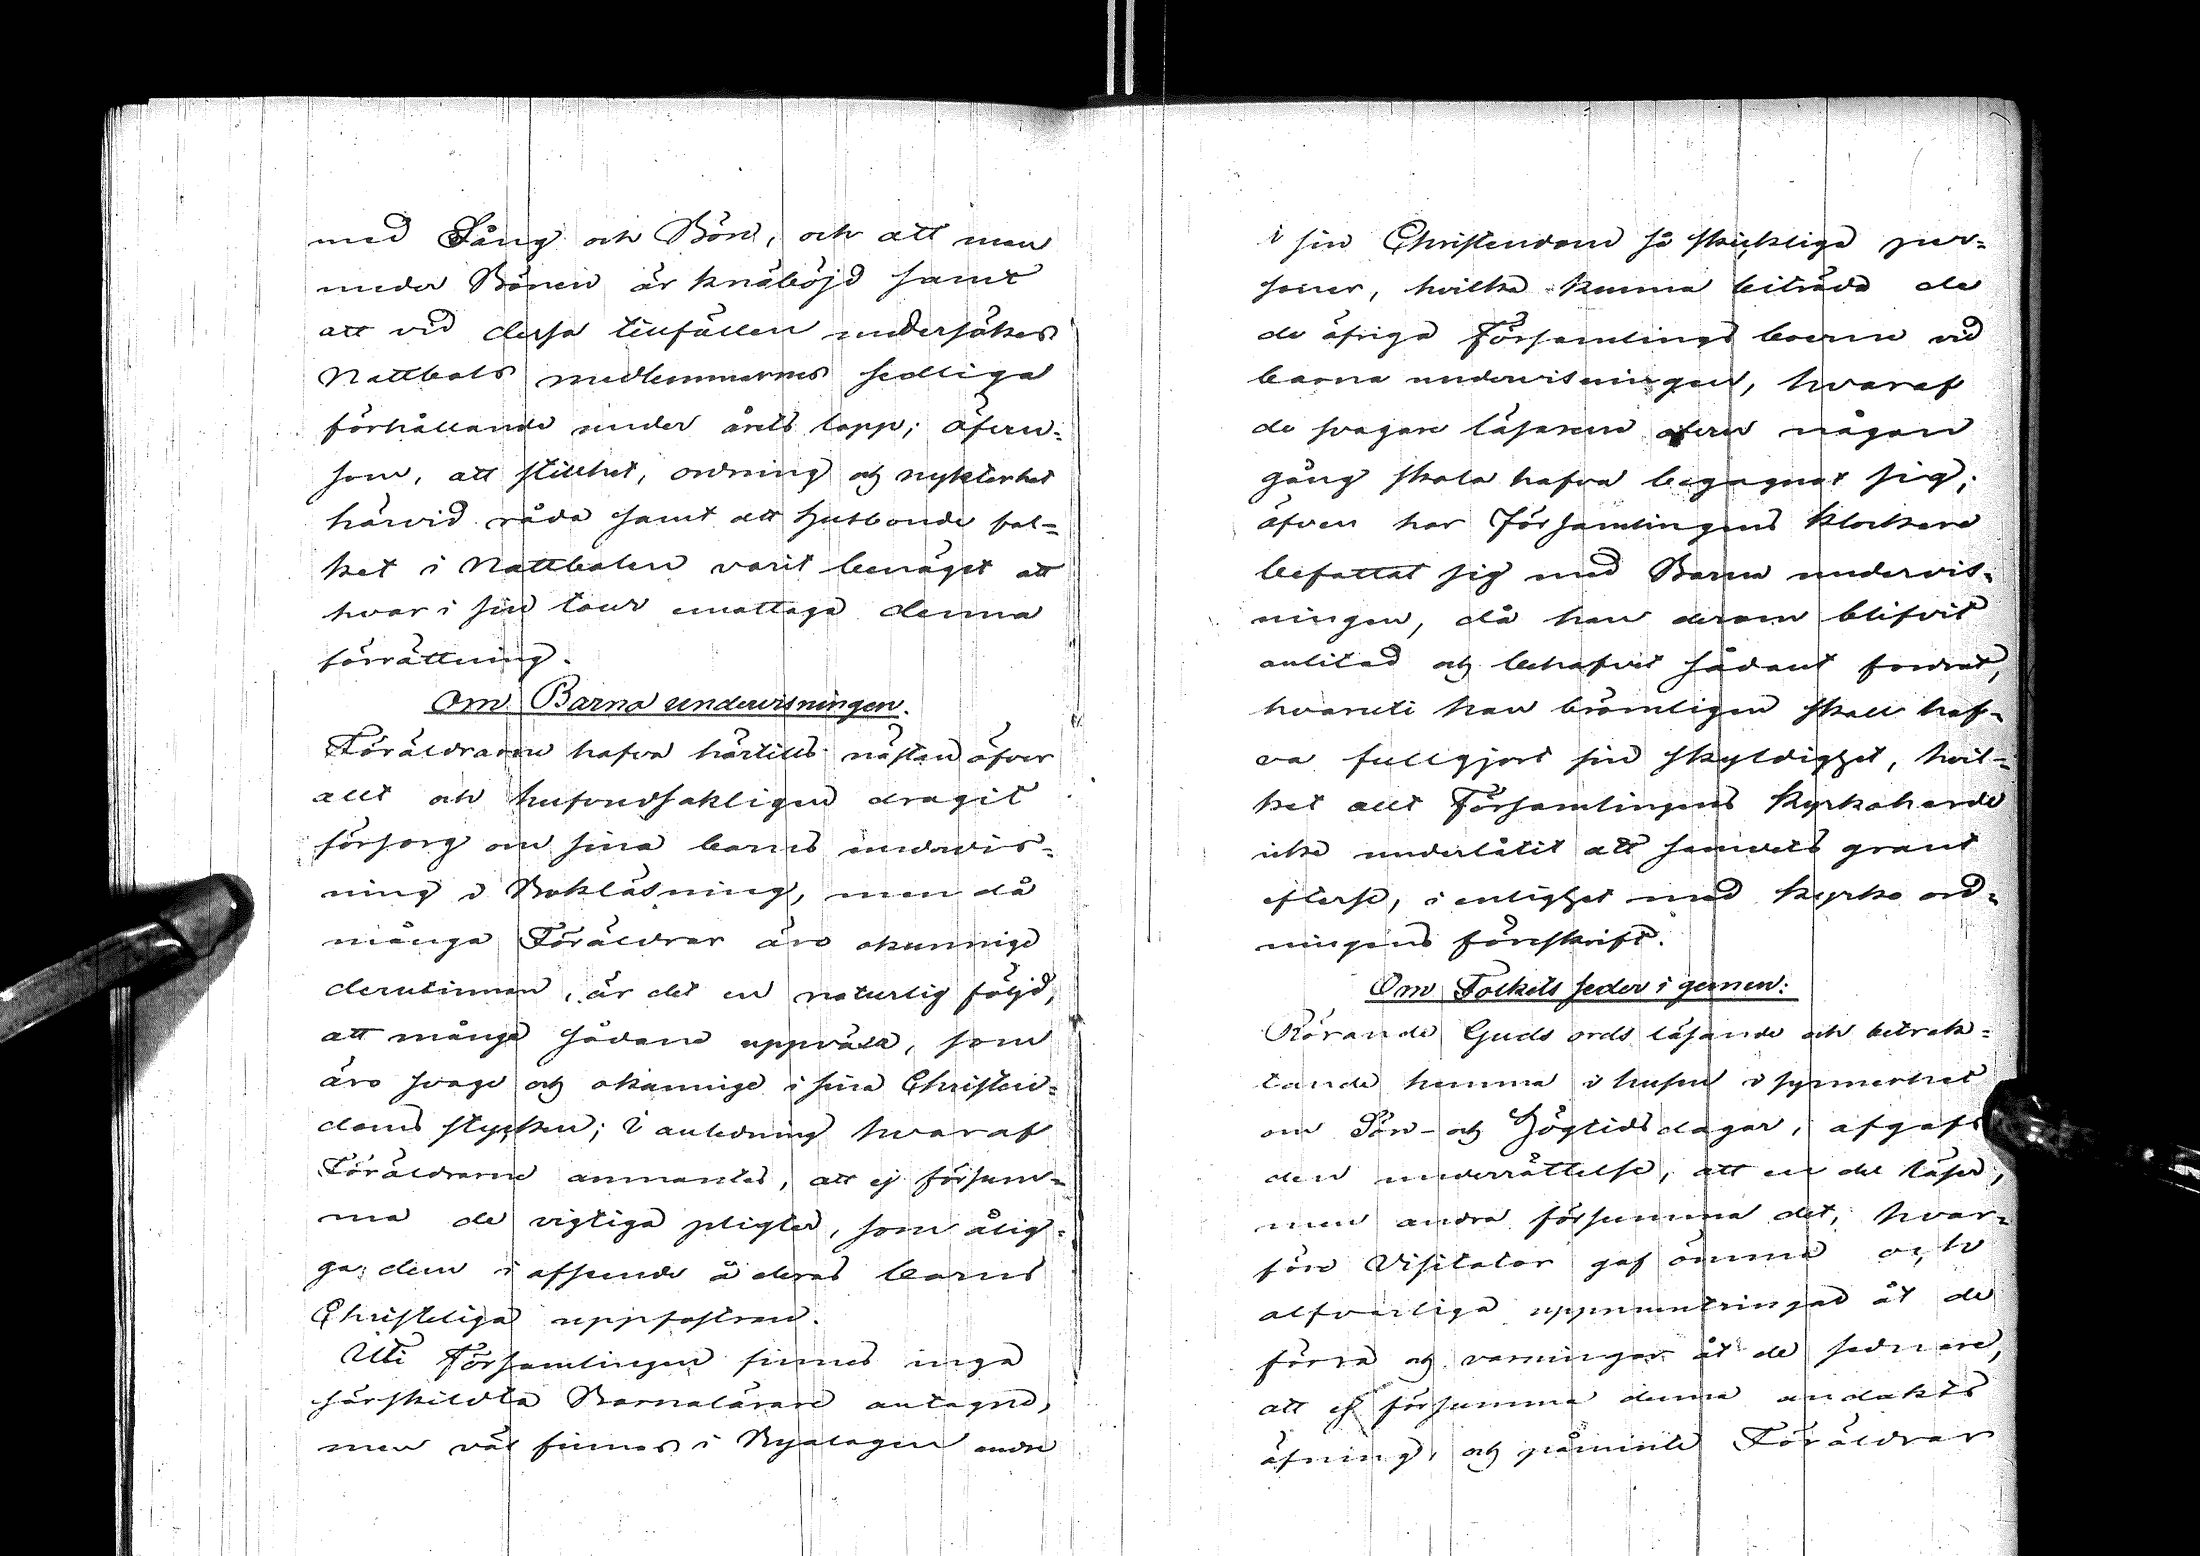 med Sång och Bön, och att man
under Bönen är knäböjd samt
att vid dessa tillfällen undersökes
Nattbols medlemmarnes sedliga
förhållande under årets lopp; äfven-
som, att stillhet, ordning och nykterhet
härvid råda samt att Husbonde fol-
ket i Nattbolen varit benäget att
hvar i sin tour emottaga denna
förrättning.
Om Barna undervisningen.
Föräldrarne hafva härtills nästan öfver
allt och hufvudsakligen dragit
försorg om sina barns undervis-
ning i Bokläsning, men då
många Föräldrar äro okunnige
derutinnan, är det en naturlig följd,
att månge sådane uppväxa, som
äro svage och okunnige i sina Christen-
doms stycken; I anledning hvaraf
Föräldrarne anmantes, att ej försum-
ma de vigtiga pligter, som ålig-
ga dem i afseende å deras barns
Christeliga uppfostran.
Uti Församlingen finnes inga
särskildta Barnalärare antagne,
men väl finnes i Byalagen andre
i sin Christendom så skicklige per-
soner, hvilka kunna biträda de
de öfriga Församlings boerne vid
barna undervisningen, hvaraf
de svagare läsarene äfven någon
gång skola hafva begagnat sig;
äfven har Församlingens Klockare
befattat sig med Barna undervis-
ningen, då han derom blifvit
anlitad och behofvet sådant fordrat,
hvaruti han berömligen skall haf-
va fullgjort sin skyldighet, hvil-
ket allt Församlingens Kyrkoherde
icke underlåtit att samvets grant
efterse, i enlighet med Kyrko ord-
ningens föreskrift.
Om Folkets seder i gemen:
Rörande Guds ords läsande och betrak-
tande hemma i husen i synnerhet
om Sön- och Högtids dagar, afgafs
den underrättelse, att en del läser,
men andra försumma det, hvar-
före Visitator gaf ömma och
alfvarliga uppmuntringar åt de
förra och varningar åt de sednare,
att ej försumma denna andakts
öfning, och påminte Föräldrar